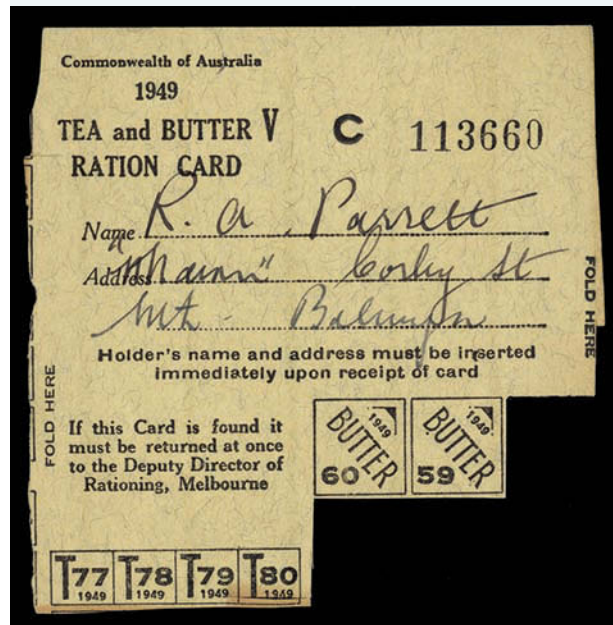 Commonwealth of Australia
1949
TEA and BUTTER V
RATION CARD
C 113660
Name R. A. Parrett
Address St
Mt
Holder's name and address must be inserted
immediately upon receipt of card
FOLD HERE
FOLD HERE
If this Card is found it
must be returned at once
to the Deputy Director of
Rationing, Melbourne
1949 BUTTER 60
1949 BUTTER 59
T77 1949 T78 1949 T79 1949 T80 1949